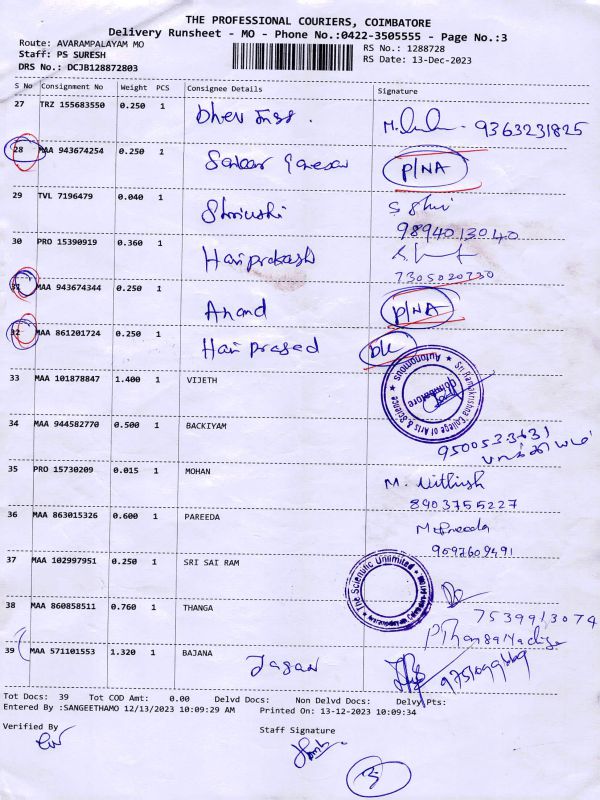 THE PROFESSIONAL COURIERS, COIMBATORE
Delivery Runsheet - MO - Phone No.:0422-3505555 - Page No.:3
Route: AVARAMPALAYAM MO
Staff: PS SURESH
DRS No.: DCJB128872803
RS No.: 1288728
RS Date: 13-Dec-2023
S No Consignment No Weight PCS Consignee Details Signature
27 TRZ 155683550 0.250 1
9363231825
28 MAA 943674254 0.250 1 P/NA
29 TVL 7196479 0.040 1 Shrinithi
9894013040
30 PRO 15390919 0.360 1 Hariprakash
7305020730
31 MAA 943674344 0.250 1 Anand P/NA
32 MAA 861201724 0.250 1 Hari Prasad DK
33 MAA 101878847 1.400 1 VIJETH
Sri Ramakrishna College of Arts & Science
Autonomous
Coimbatore
34 MAA 944582770 0.500 1 BACKIYAM 9500533631
35 PRO 15730209 0.015 1 MOHAN M. Nithish
8903755227
36 MAA 863015326 0.600 1 PAREEDA
9597609491
37 MAA 102997951 0.250 1 SRI SAI RAM
The Scientific Unlimited
38 MAA 860858511 0.760 1 THANGA 7539913074
39 MAA 571101553 1.320 1 BAJANA Jagan
Tot Docs: 39 Tot COD Amt: 0.00 Delvd Docs: Non Delvd Docs: Delvy Pts:
Entered By :SANGEETHAMO 12/13/2023 10:09:29 AM Printed On: 13-12-2023 10:09:34
Verified By
Staff Signature